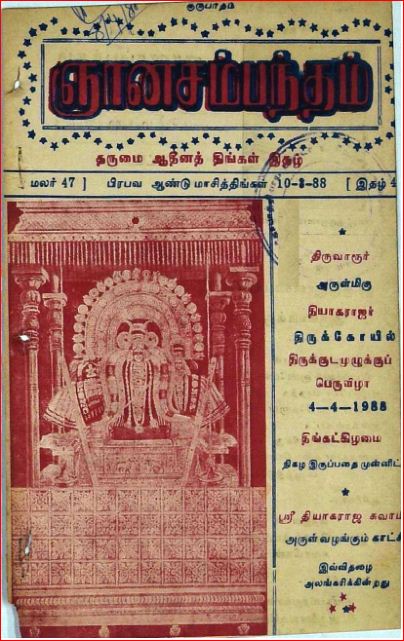 குருபாதம்
ஞானசம்பந்தம்
தருமை ஆதீனத் திங்கள் இதழ்
மலர் 47 ] பிரபவ ஆண்டு மாசித்திங்கள் 10-3-88 [ இதழ் 4
திருவாரூர்
அருள்மிகு
தியாகராஜர்
திருக்கோயில்
திருக்குடமுழுக்குப்
பெருவிழா
4-4-1988
திங்கட்கிழமை
நிகழ இருப்பதை முன்னிட்
ஸ்ரீ தியாகராஜ சுவாமி
அருள்வழங்கும் காட்சி
இவ்விதழை
அலங்கரிக்கின்றது